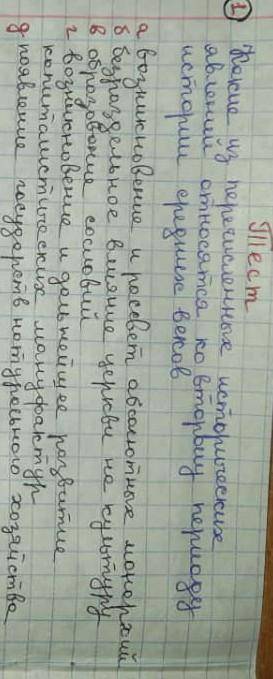 Тест
① Какие из перечисленных исторических
явлений относятся ко второму периоду
истории средних веков
а возникновение и рассвет абсолютных монархий
б безраздельное влияние церкви на культуру
в образование сословий
г возникновение и дальнейшее развитие
капиталистических мануфактур
д появление государств натурального хозяйства